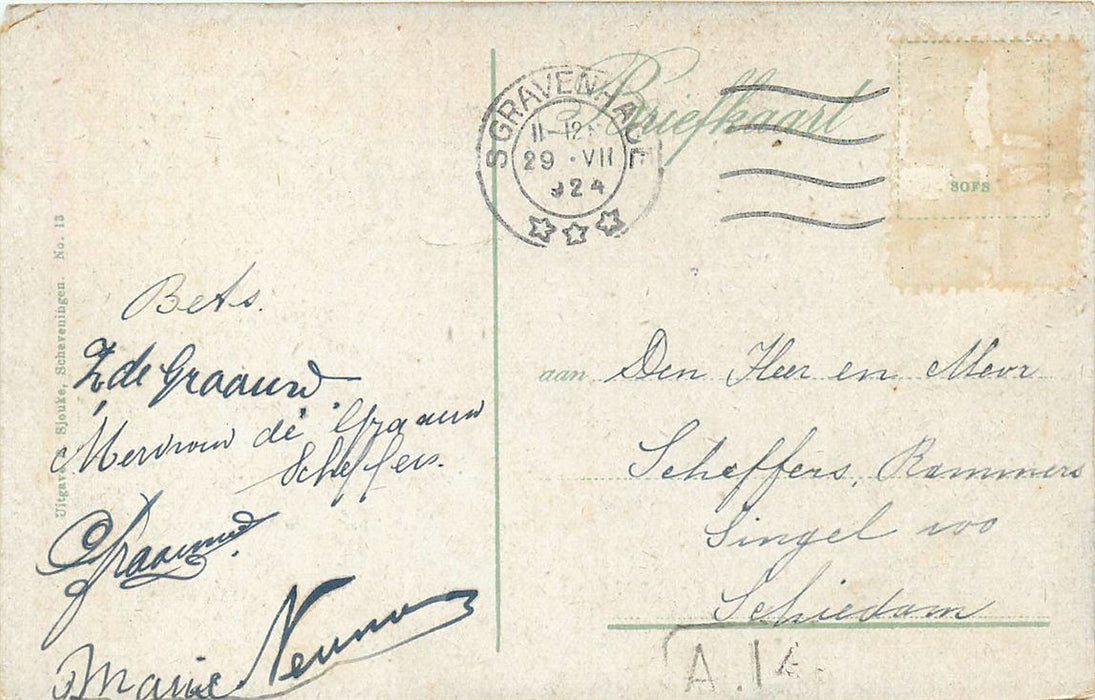 Briefkaart
S GRAVENHAGE
11-12
29 VII
924
SOFS
Uitgave A Sjouke, Scheveningen. No. 13
Bets.
Z de Graauw
Mevrouw de Graauw
Scheffers.
Graauw
Marie
aan Den Heer en Mevr
Scheffers, Rammers
Singel 100
Schiedam
A.14.